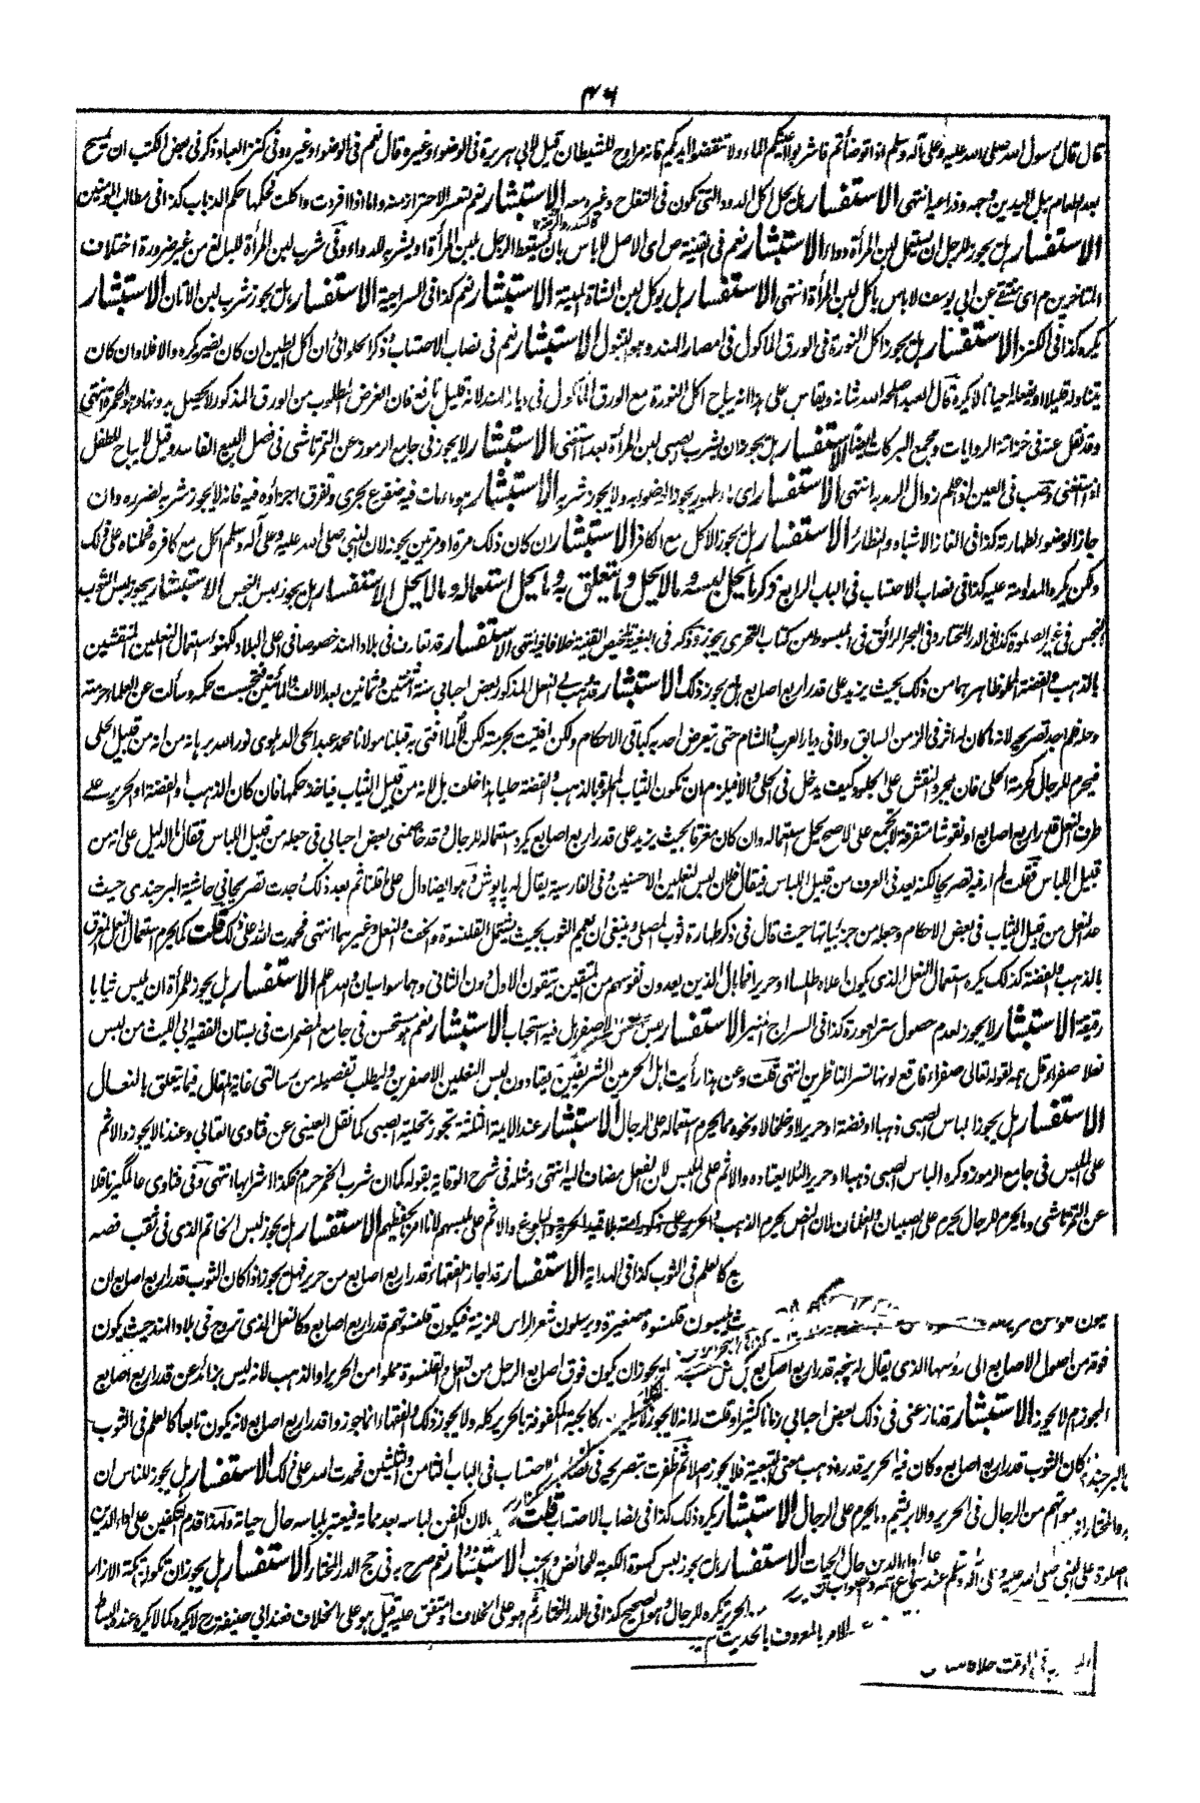 ٤٦
قال قال رسول الله صلى الله عليه وعلى آله وسلم اذا توضأتم فاشربوا عينكم الماء ولا تنفضوا ايديكم فانه مراوح للشيطان قيل لابي هريرة في الوضوء وغيره قال نعم في الوضوء وغيره وفي كنز العباد وذكر في بعض الكتب ان يمسح
بعد الطعام بلل اليدين وجهه وذراعيه انتهى الاستفسار هل يحل اكل الدود التي تكون في التفاح وغيره معه الاستبشار نعم لتعسر الاحتراز منه واما اذا افردت واكلت فحكمها حكم الذباب كذا في مطالب المؤمنين
الاستفسار هل يجوز للرجل ان يستعمل لبن المرأة دواء الاستبشار نعم في القنية ص اى الاصل لا باس بان يستعط الرجل بلبن المرأة او يشربه للدواء وفي شرب لبن المرأة للبالغ من غير ضرورة اختلاف
المتاخرين م اى منتقى عن ابي يوسف لا باس باكل لبن المرأة انتهى الاستفسار هل يوكل لبن الشاة الميتة الاستبشار نعم كذا في السراجية الاستفسار هل يجوز شرب لبن الاتان الاستبشار
يكره كذا في الكنز الاستفسار هل يجوز اكل النورة في الورق الماكول في امصار الهند وهو التنبول الاستبشار نعم في نصاب الاحتساب وذكر الحلوائي ان اكل الطين ان كان يضر يكره والا فلا وان كان
يتناوله قليلا او يفعله احيانا لا يكره قال العبد اصلحه الله شانه ويقاس على هذا انه يباح اكل النورة مع الورق الماكول في ديار الهند لانه قليل نافع فان الغرض المطلوب من الورق المذكور لا يحصل بدونها وهو الحمرة انتهى
وقد نقل عنه في خزانة الروايات ومجمع البركات ايضا الاستفسار هل يجوز ان يشرب الصبي لبن المرأة بعد استغنى الاستبشار لا يجوز في جامع الرموز عن التمرتاشي في فصل البيع الفاسد وقيل لا يباح للطفل
اذا استغنى وصب في العين اذا علم زوال الرمد به انتهى الاستفسار اى ماء طهور يجوز الوضوء به ولا يجوز شربه الاستبشار هو ماء مات فيه ضفدع بحرى وتفرق اجزاؤه فيه فانه لا يجوز شربه لضرره وان
جاز الوضوء والطهارة كذا في الغاز الاشباه والنظائر الاستفسار هل يجوز الاكل مع الكافر الاستبشار ان كان ذلك مرة او مرتين يجوز لان النبي صلى الله عليه وعلى آله وسلم اكل مع كافر فحملناه على ذلك
ولكن يكره المداومة عليه كذا في نصاب الاحتساب في الباب الرابع ذكر ما يحل لبسه وما لا يحل وما يتعلق به وما يحل استعماله وما لا يحل الاستفسار هل يجوز لبس النجس الاستبشار يجوز لبس الثوب
النجس في غير الصلوة كذا في الدر المختار وفي البحر الرائق في المبسوط من كتاب التحرى يجوز وذكر في البغية تلخيص القنية خلافا فيه انتهى الاستفسار قد تعارف في بلاد الهند خصوصا في اعلى البلاد لكهنؤ استعمال النعلين المنقشين
بالذهب والفضة المملو ظاهرهما من ذلك بحيث يزيد على قدر اربع اصابع هل يجوز ذلك الاستبشار قد بعض احبابي سنة اثنتين وثمانين بعد الالف والمائتين فتجسست حكمه وسألت عن العلماء حرمته
وحله فلم اجد تصريحه لانه ما كان له اثر في الزمن السابق ولا في ديار العرب والشام حتى تعرض احد به كباقي الاحكام ولكن افتيت بحرمته لكن ما افتى به قبلنا مولانا محمد عبد الحي الدهلوى نور الله برهانه من انه من قبيل الحلي
فيحرم للرجال كحرمة الحلي فان مجرد النقش على الجلد كيف يدخل في الحلي والا فيلزم ان تكون الثياب المغرقة بالذهب والفضة حليا هذا خلف بل لانه من قبيل الثياب فياخذ حكمها فان كان الذهب او الفضة او الحرير على
طرف النعل قدر اربع اصابع او نقوشا متفرقة لا تجمع على الاصح يحل استعماله وان كان مغرقا بحيث يزيد على قدر اربع اصابع يكره استعماله للرجال وقد خاصمني بعض احبابي في جعله من قبيل اللباس فقال ما الدليل على انه من
قبيل اللباس فقلت لم ار فيه تصريحا لكنه يعد في العرف من قبيل اللباس فيقال فلان لبس النعلين الاحسنين وفي الفارسية يقال له پاپوش وهو ايضا دال على ما قلنا ثم بعد ذلك وجدت تصريحا في حاشية البرجندى حيث
عد النعل من قبيل الثياب في بعض الاحكام وجعله من جزئياتها حيث قال في ذكر طهارة ثوب المصلي وينبغي ان يعمم الثوب بحيث يشمل القلنسوة والخف والنعل وغيرهما انتهى فحمدت الله على ذلك قلت كما يحرم استعمال النعل المغرق
بالذهب والفضة كذلك يكره استعمال النعل الذى يكون اعلاه طلسا او حريرا فما بال الذين يعدون نفوسهم من المتقين يتقون الاول دون الثاني وهما سواسيان والله اعلم الاستفسار هل يجوز للمرأة ان تلبس ثيابا
رقيقة الاستبشار لا يجوز لعدم حصول ستر العورة كذا في السراج المنير الاستفسار لبس النعل الاصفر هل فيه استحباب الاستبشار نعم هو مستحسن في جامع المضمرات في بستان الفقيه ابي الليث من لبس
نعلا صفراء قل همه لقوله تعالى صفراء فاقع لونها تسر الناظرين انتهى قلت وعن هذا رأيت اهل الحرمين الشريفين يعتادون لبس النعلين الاصفرين وليطلب تفصيله من رسالتي غاية المقال فيما يتعلق بالنعال
الاستفسار هل يجوز الباس الصبي ذهبا او فضة او حريرا او خلخالا ونحوه مما يحرم استعماله على الرجال الاستبشار عند الائمة الثلثة تجوز تحلية الصبي كما نقل العيني عن فتاوى العتابي وعندنا لا يجوز والاثم
على الملبس في جامع الرموز وكره الباس الصبي ذهبا او حريرا لئلا يعتاده والاثم على الملبس لان الفعل مضاف اليه انتهى ومثله في شرح الوقاية بقوله كما ان شرب الخمر حرام فكذا اشرابها انتهى وفي فتاوى عالمگير ناقلا
عن التمرتاشي وما يحرم للرجال يحرم على الصبيان والغلمان لان النص يحرم الذهب والحرير على ذكور امته بلا قيد الحرية والبلوغ والاثم على ملبسهم لانا امرنا بحفظهم الاستفسار هل يجوز لبس الخاتم الذى في ثقب فصه
كالعلم في الثوب كذا في الهداية الاستفسار قد اجاز الفقهاء قدر اربع اصابع من حرير فهل يجوز اذا كان الثوب قدر اربع اصابع ان
يلبسون قلنسوة صغيرة ويرسلون شعر الراس للزينة فيكون قلنسوتهم قدر اربع اصابع وكالنعل الذى تروج في بلاد الهند حيث يكون
فوقه من اصول الاصابع الى رؤسها الذى يقال له پنجه قدر اربع اصابع ايجوز ان يكون فوق اصابع الرجل من النعل والقلنسوة مملوا من الحرير او الذهب لانه ليس بزائد عن قدر اربع اصابع
المجوز ام لا يجوز الاستبشار قد نازعني في ذلك بعض احبابي زمانا كثيرا وقلت له انه لا يجوز كالجبة المكفوفة بالحرير كله ولا يجوز ذلك والفقهاء انما جوزوا قدر اربع اصابع لانه يكون تابعا كالعلم في الثوب
كان الثوب قدر اربع اصابع وكان فيه الحرير قدره ذهب معنى التبعية فلا يجوز اصلا ثم ظفرت بتصريحه في الاحتساب في الباب الثامن والثلثين فحمدت الله على ذلك الاستفسار هل يجوز للناس ان
موتهم من الرجال في الحرير والابريشم وما يحرم على الرجال الاستبشار يكره ذلك كذا في نصاب الاحتساب قلت لان الكفن لباسه بعد مماته فيعتبر بلباسه حال حياته ولهذا قدم التكفين على اداء الدين
حال الحيات الاستفسار هل يجوز لبس كسوة الكعبة للحائض والجنب الاستبشار نعم صرح به في حج الدر المختار الاستفسار هل يجوز ان تكون تكة الازار
الحرير يكره للرجال وهو الصحيح كذا في الدر المختار ثم هو على الخلاف او متفق عليه قيل هو على الخلاف فعند ابي حنيفة رح لا يكره كما لا يكره عنده
الامر بالمعروف بالحديث